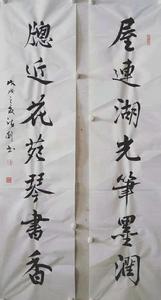 屋連湖光筆墨潤
牕近花苑琴書香
戊戌之夏